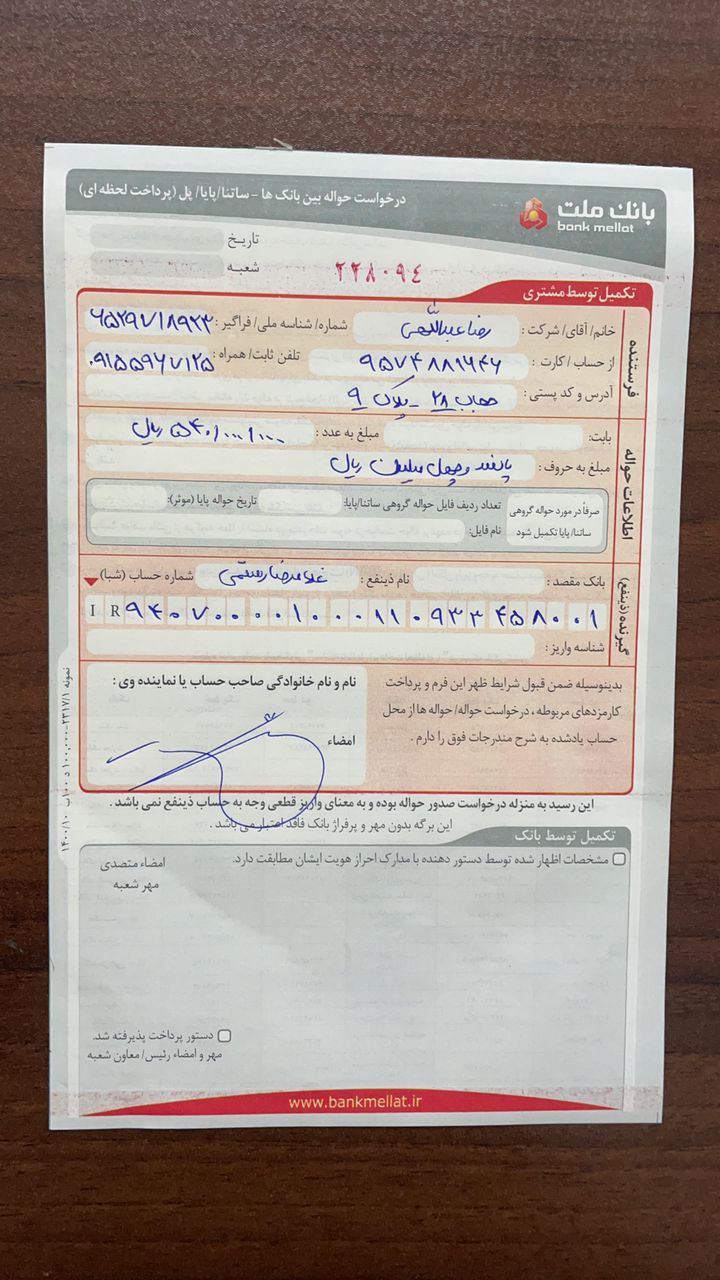 بانک ملت
bank mellat
درخواست حواله بین بانک ها - ساتنا/پایا/ پل (پرداخت لحظه ای)
تاریخ
شعبه
۲۲۸۰۹٤
تکمیل توسط مشتری
فرستنده
خانم/ آقای/ شرکت : رضا عبداللهی شماره/ شناسه ملی/ فراگیر : ۶۵۲۹۷۱۸۹۲۳
از حساب / کارت : ۹۵۷۴۸۸۱۶۴۶ تلفن ثابت/ همراه : ۰۹۱۵۵۹۶۷۱۲۵
آدرس و کد پستی : ۲۸ - پلاک ۹
اطلاعات حواله
بابت: مبلغ به عدد : ۵۴۰/۰۰۰/۰۰۰ ریال
مبلغ به حروف : پانصد و چهل میلیون ریال
صرفاً در مورد حواله گروهی ساتنا/ پایا تکمیل شود
تعداد ردیف فایل حواله گروهی ساتنا/پایا: تاریخ حواله پایا (موثر):
نام فایل:
گیرنده (ذینفع)
بانک مقصد : نام ذینفع : غلامرضا رستمی شماره حساب (شبا)
IR ۹۴۰۷۰۰۰۰۱۰۰۰۱۱۰۹۳۳۴۵۸۰۰۱
شناسه واریز :
بدینوسیله ضمن قبول شرایط ظهر این فرم و پرداخت
کارمزدهای مربوطه ، درخواست حواله/ حواله ها از محل
حساب یادشده به شرح مندرجات فوق را دارم .
نام و نام خانوادگی صاحب حساب یا نماینده وی :
امضاء
این رسید به منزله درخواست صدور حواله بوده و به معنای واریز قطعی وجه به حساب ذینفع نمی باشد .
این برگه بدون مهر و پرفراژ بانک فاقد اعتبار می باشد .
تکمیل توسط بانک
مشخصات اظهار شده توسط دستور دهنده با مدارک احراز هویت ایشان مطابقت دارد.
امضاء متصدی
مهر شعبه
دستور پرداخت پذیرفته شد.
مهر و امضاء رئیس/ معاون شعبه
www.bankmellat.ir